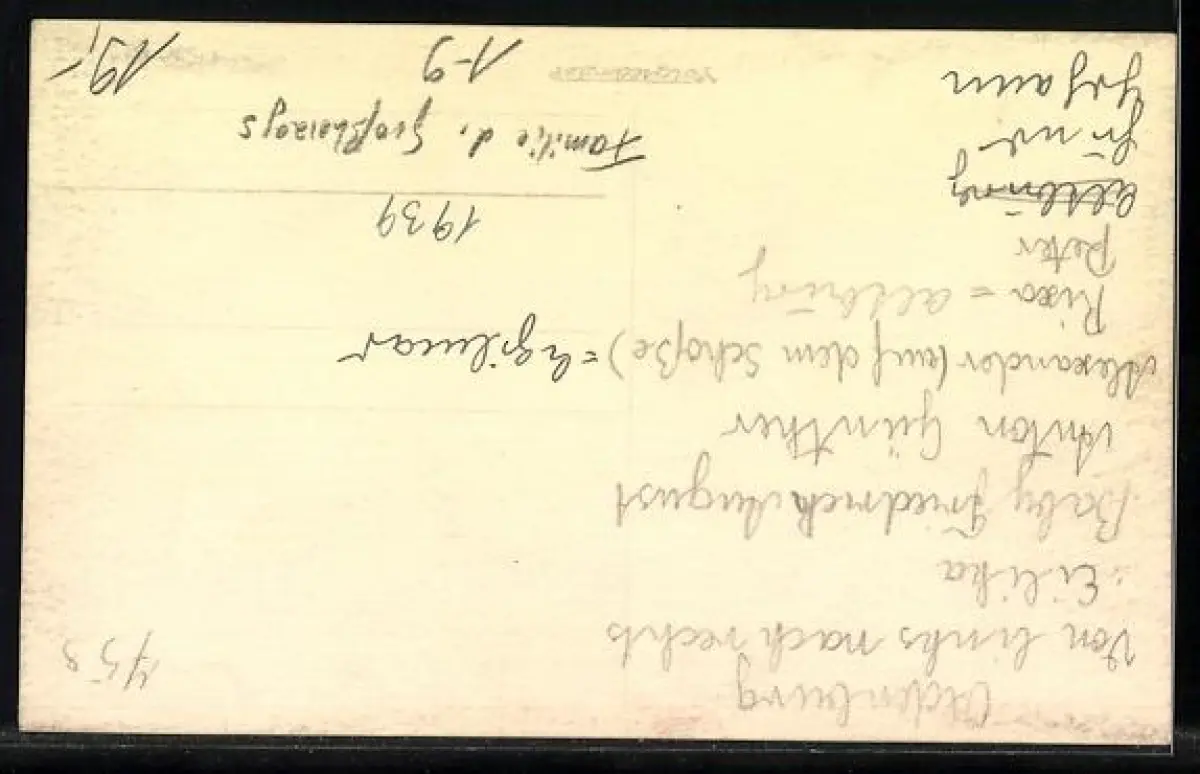 Oldenburg
Von links nach rechts
: Eilika
Baby Friedrich August
Anton Günther
Alexander (auf dem Schoße) = Egilmar
Rixa = altburg
Peter
altburg
1939
Familie d. Großherzogs
1-9
19,-
453